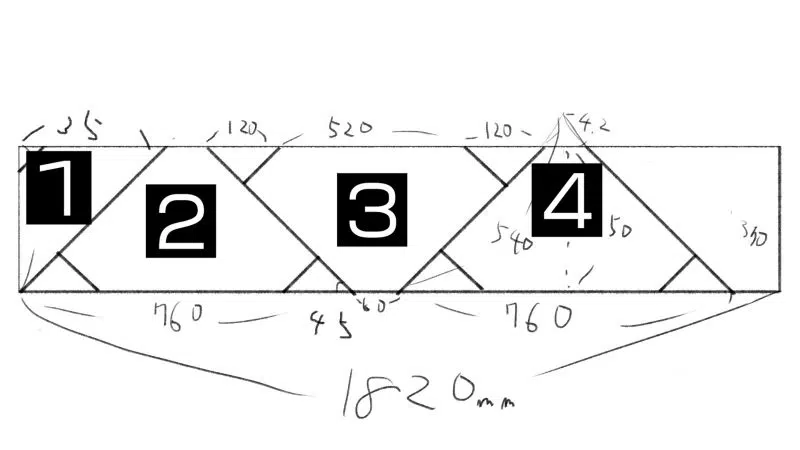 35 120 520 120 54.2
1 2 3 4
540 50 350
760 45 60 760
1820mm